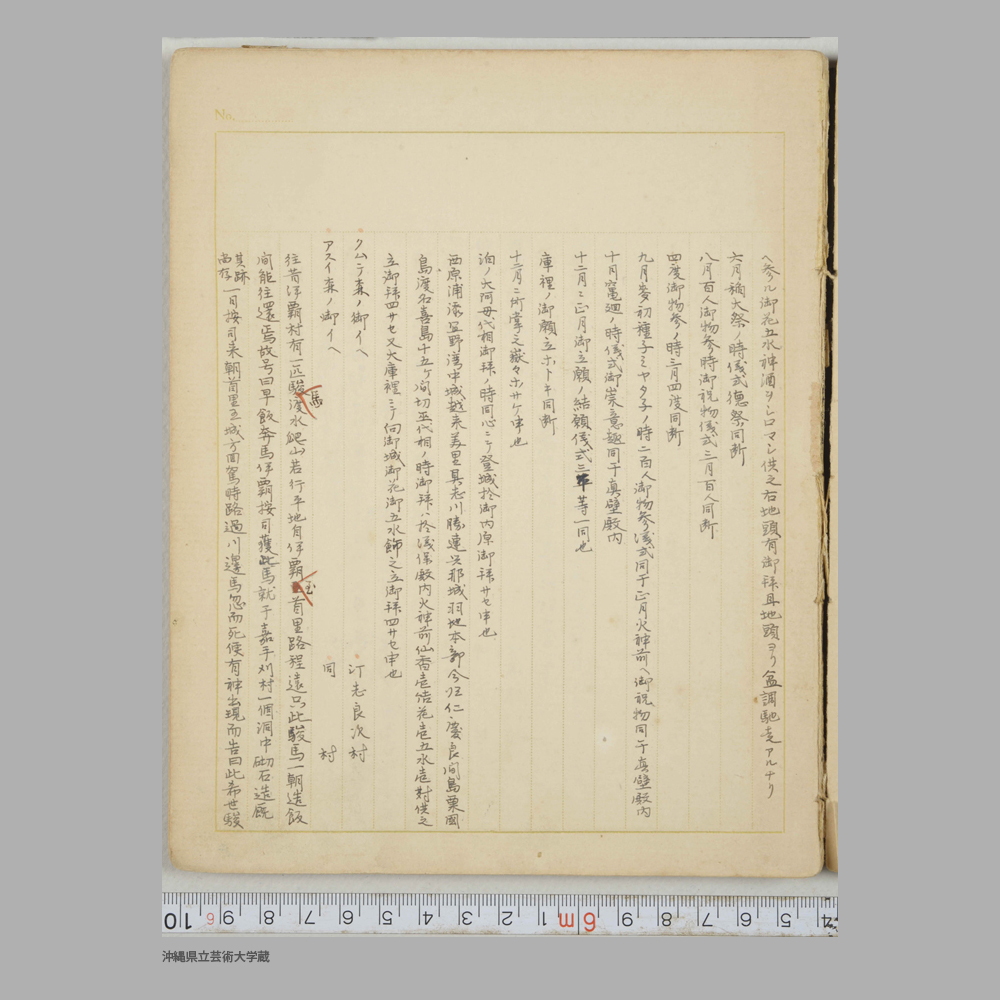 No.
ヘ参ル御花五水神酒ヲシロマシ供之右地頭有御拝且地頭ヨリ盆調馳走アルナリ
六月穂大祭ノ時儀式穂祭同断
八月百人御物参時御祝物儀式三月百人同断
四度御物参ノ時三月四度同断
九月麦ノ初種子ミヤタ子ノ時二百人御物参儀式同于正月火神前ヘ御祝物同于真壁殿内
十月竈廻ノ時儀式御崇意趣同于真壁殿内
十二月ニ正月御立願ノ結願儀式三平等一同也
庫裡ノ御願立ホトキ同断
十二月ニ所掌之嶽々ホサケ申也
泊ノ大阿母代相御拝ノ時同心ニテ登城於御内原御拝サセ申也
西原浦添宜野湾中城越来美里具志川勝連与那城羽地本部今帰仁慶良間島粟国
島渡名喜島十五ヶ間切巫代相ノ時御拝ハ於儀保殿内火神前仙香壱結花壱五水壱対供之
立御拝四サセ又大庫裡ニテ向御城御花御五水飾之立御拝四サセ申也
クムテ森ノ御イヘ 汀志良次村
アスイ森ノ御イヘ 同 村
往昔伊覇村有一匹駿馬渡水爬山若行平地自伊覇至首里路程遠只此駿馬一朝造飯
間能往還焉故号曰早飯奔馬伊覇按司獲此馬就于嘉手刈村一個洞中砌石造厩
其跡尚存一日按司来朝首里王城方回駕時路過川邊馬忽而死倏有神出現而告曰此希世駿
10 6 9 8 7 6 5 4 3 2 1 6m 9 8 7 6 5 4
沖縄県立芸術大学蔵